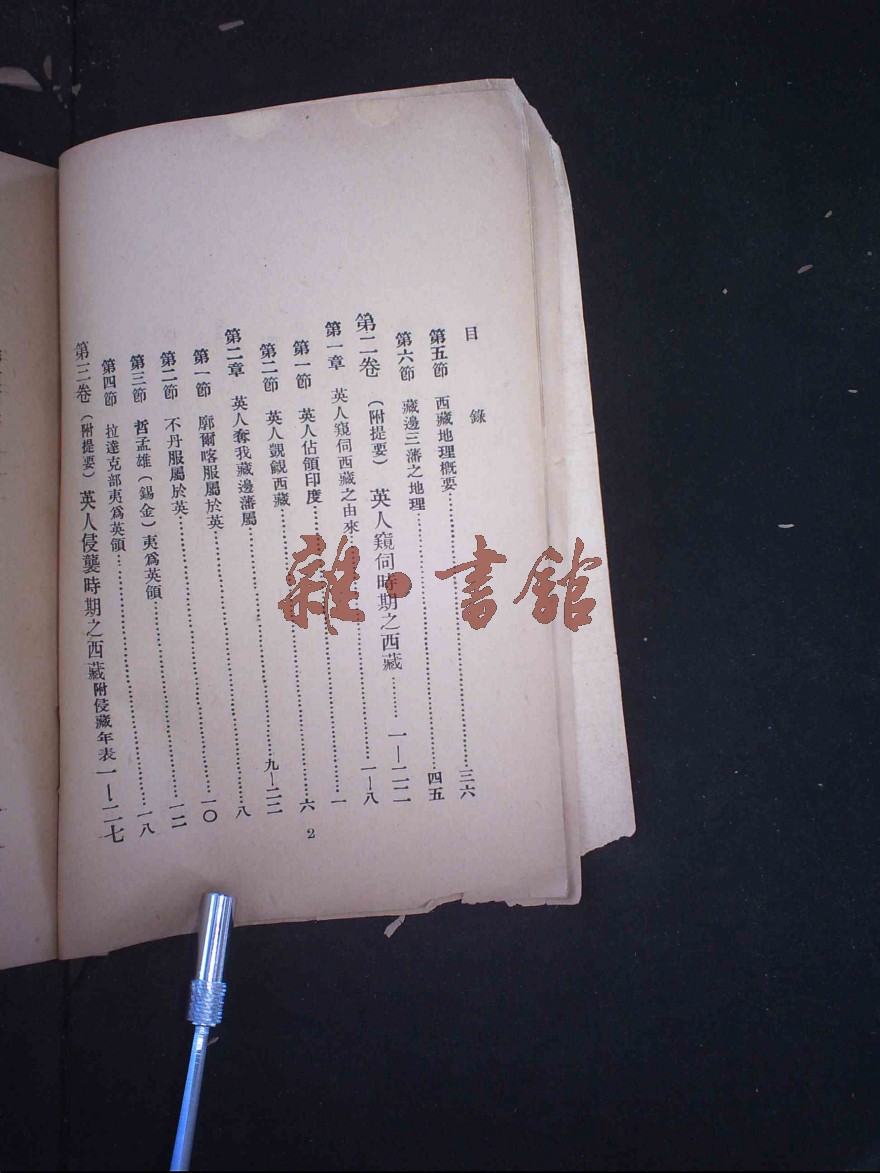 目錄
第五節 西藏地理槪要…………三六
第六節 藏邊三藩之地理…………四五
第二卷 (附提要) 英人窺伺時期之西藏……一—二二
第一章 英人窺伺西藏之由來…………一—八
第一節 英人佔領印度…………一
第二節 英人覬覦西藏…………六
第二章 英人奪我藏邊藩屬…………九—二二
第一節 廓爾喀服屬於英…………八
第二節 不丹服屬於英…………一〇
第三節 哲孟雄(錫金)夷爲英領…………一二
第四節 拉達克部夷爲英領…………一八
第三卷 (附提要) 英人侵襲時期之西藏附侵藏年表一—二七
2
雜·書館